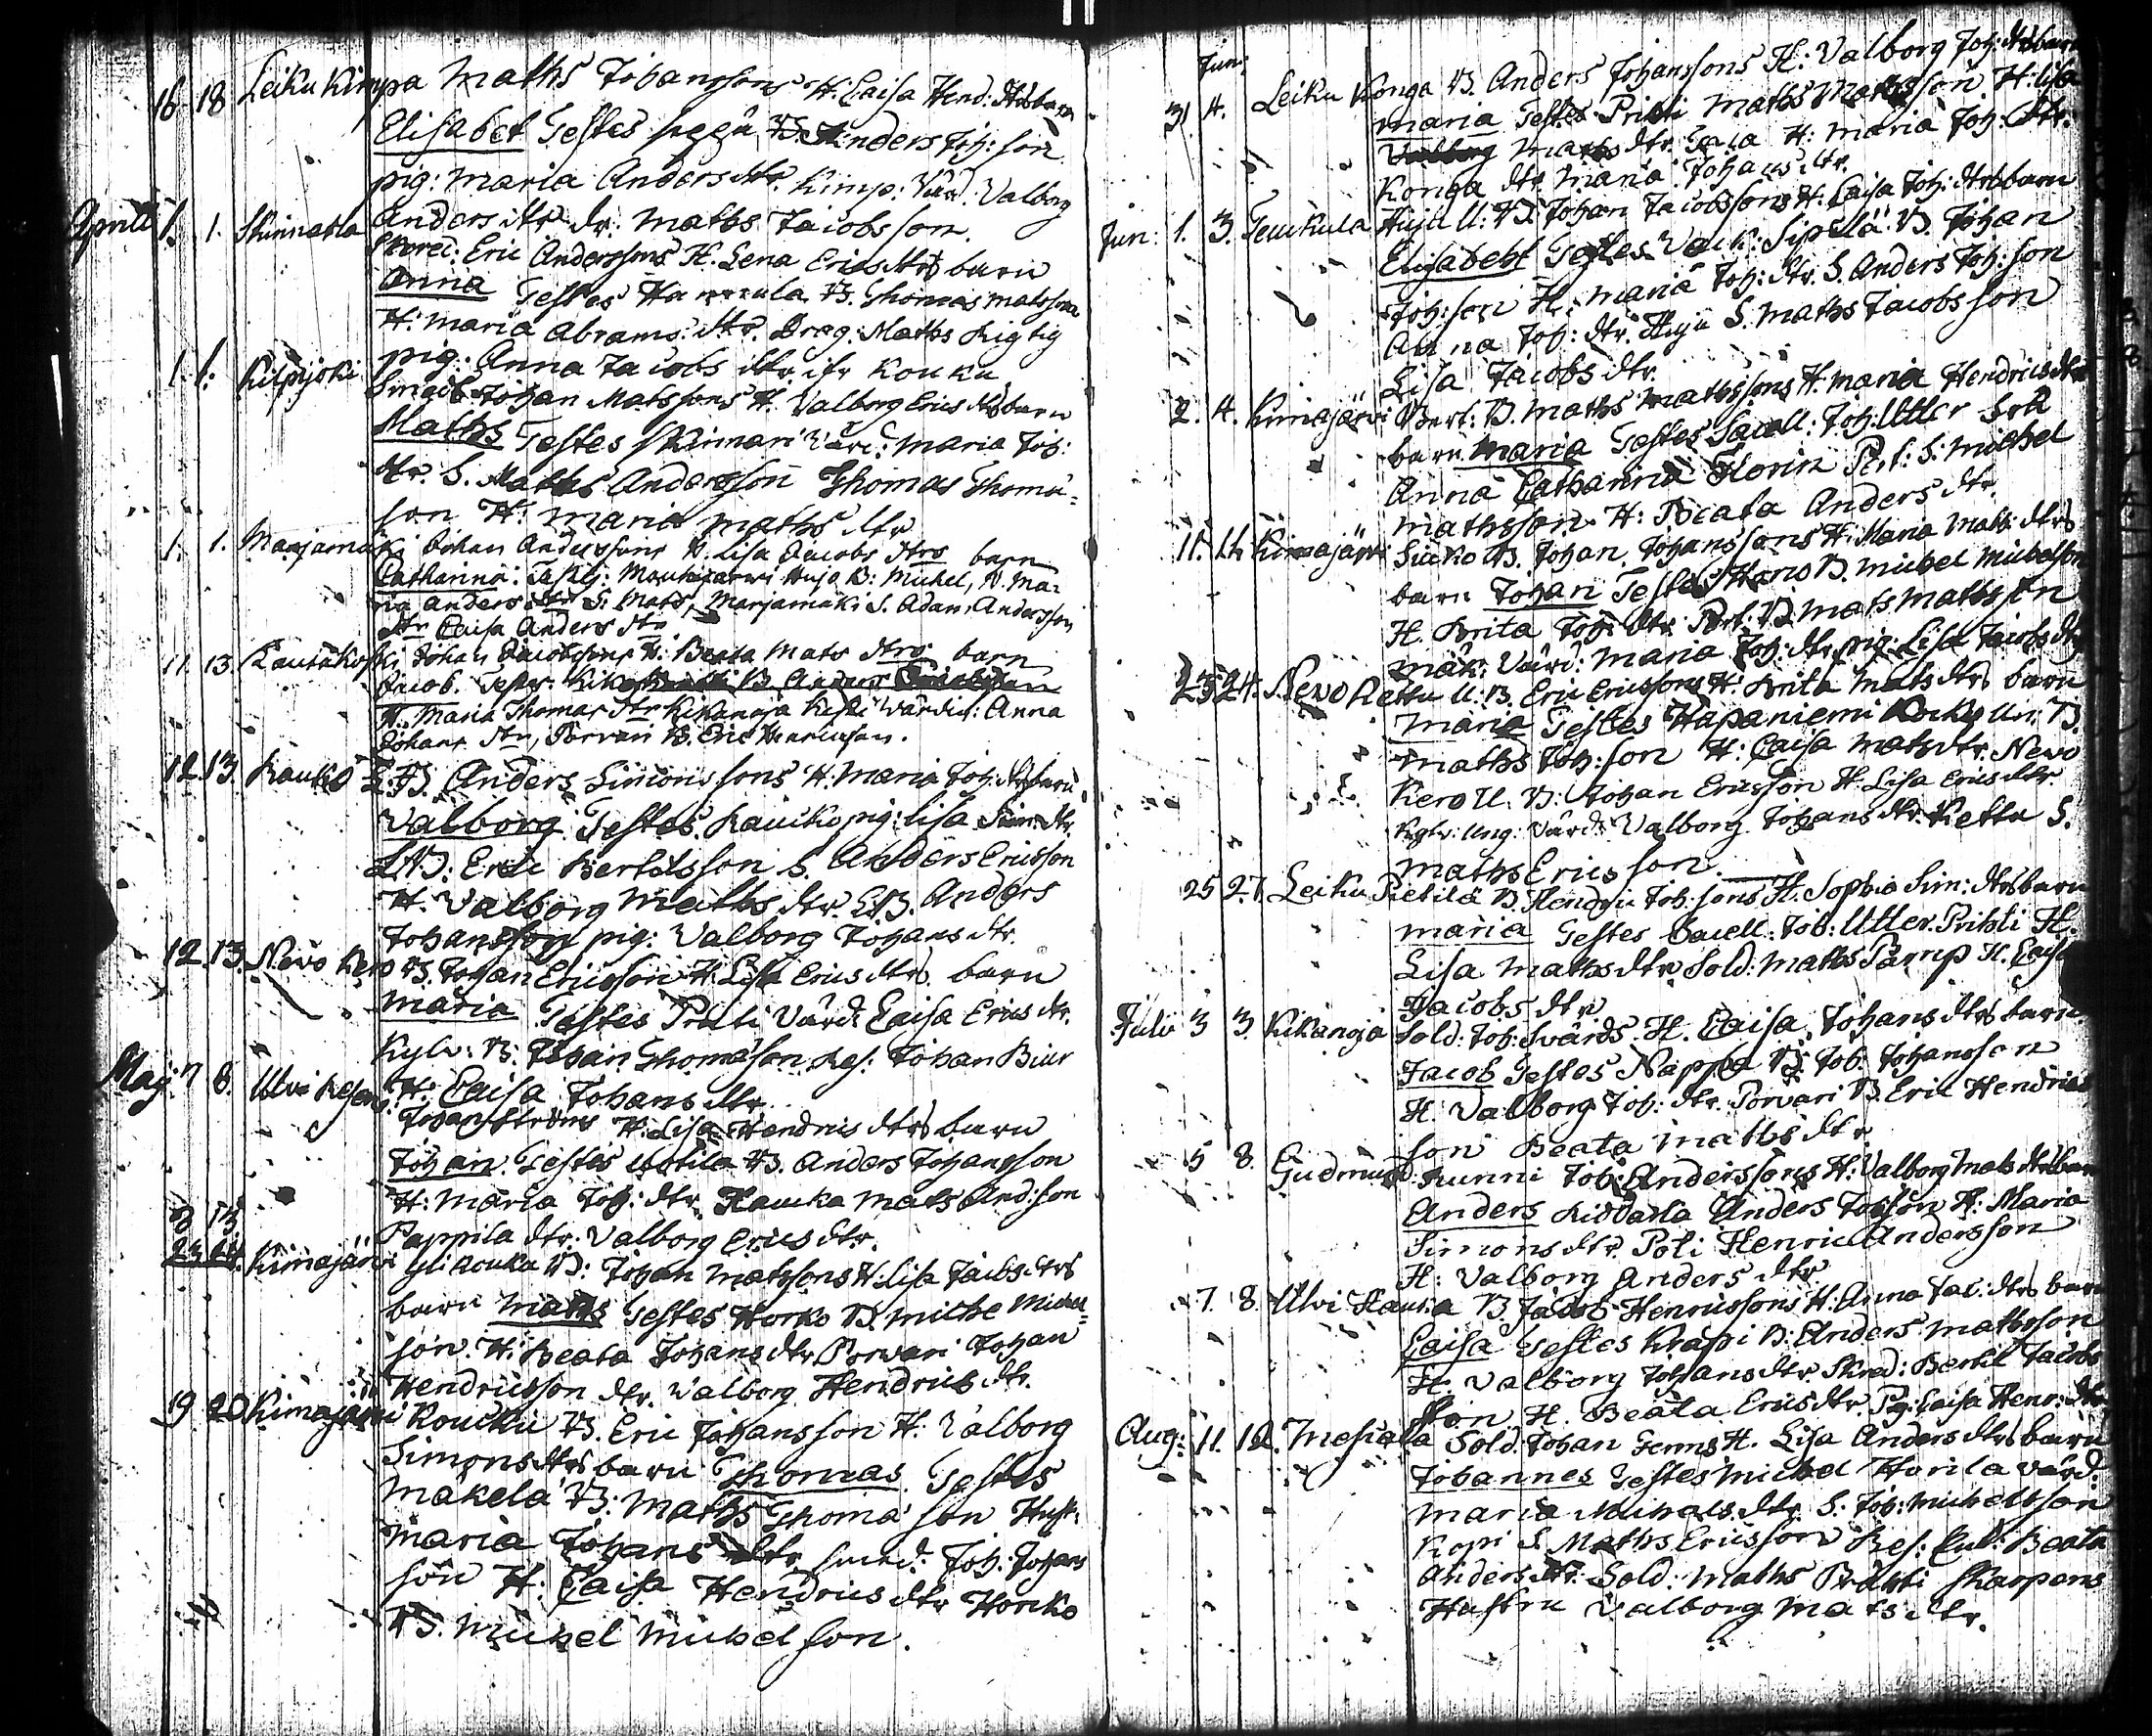 16 18 Leiku Kimpa Maths Johanssons H. Caisa Hend: dtrs barn
Elisabet Testes Hyyä B. Anders Joh: son
pig: Maria Anders dtr. Kimp: Värd. Valborg
Anders dtr. dr: Maths Jacobsson.
Aprill 1. 1. Skinnarla Skred: Eric Anderssons H. Lena Erics dtrs barn
Anna Testes Hannula B. Thomas Matsson
H. Maria Abrams: dtr. Drag: Maths Rigtig
pig: Anna Jacobs dtr. ifr Kouku
1. 1. Kilpijoki Smed: Johan Matssons H. Valborg Erics dtrs barn
Maths Testes Skinnari Värd: Maria Joh:
dtr. S. Maths Andersson Thomas Thoma-
son H. Maria Maths dtr
1. 1. Marjamäki Johan Anderssons H. Lisa Jacobs dtrs barn
Catharina. Testes: Hujo B: Michel, H. Ma-
ria Anders dtr S. Mats, Marjamäki S. Adam Andersson
dtr Caisa Anders dtr
11. 13. Rautakoski Johan Jacobssons H. Beata Mats dtrs barn
Jacob. Testes. B Anders
H. Maria Thomas dtr Kikanoja Värdin: Anna
Johans dtr, Porvari B. Eric Henricsson.
12 13. Kauko L. B. Anders Simonssons H. Maria Joh: dtrs barn
Valborg Testes. Kaucko pig: Lisa Sim: dtr.
L.B: Eric Bertelsson S. Anders Ericsson
H. Valborg Maths dtr. L.B. Anders
Johansson pig: Valborg Johans dtr.
12. 13. Nevo Kero B. Johan Ericsson H. Lisa Erics dtrs barn
Maria Testes Pruti Värd: Caisa Erics dtr.
Kylv: B. Johan Thomasson Res: Johan Biur
H. Caisa Johans dtr
Maj: 7 8. Ulvi Johan Ströms H. Lisa Hendrics dtrs barn
Johan Testes Uotila B. Anders Johansson
H: Maria Joh: dtr. Hauka Mats And: son
Pappila dtr: Valborg Erics dtr.
8 13
23 24. Kimajärvi Yli Kouku B: Johan Matssons H. Lisa Jacobs dtrs
barn Maths Testes Horko B. Michel Michel-
son. H. Beata Johans dtr Porvari Johan
Hendricsson dtr. Valborg Hendrics dtr.
19 20 Kimajärvi Koucku B. Eric Johansson H: Valborg
Simons dtrs barn Thomas Testes
Mäkelä B: Maths Thoma son Hust:
Maria Johans dtr smed: Joh: Johans
son H: Caisa Hendrics dtr Horcko
B. Michel Michelson.
Jun:
31 4. Leiku Konga B. Anders Johanssons H: Valborg Joh: dtrs barn
Maria Testes Prihti Maths Mathsson H: Lisa
Maths dtr. H: Maria Joh: dtr.
Konga dtr. Maria Johans dtr.
Jun: 1. 3. Teuckula Hujo U: B. Johan Jacobssons H. Caisa Joh: dtrs barn
Elisabeht Testes Sipilä B. Johan
Joh: son H: Maria Joh: dtr. S. Anders Joh: son
Anna Joh: dtr. Hujo S. Maths Jacobsson
Lisa Jacobs dtr.
2. 4. Kimajärvi Pert: B. Maths Mathssons H. Maria Hendrics dtrs
barn Maria Testes Sacell: Joh: Utter Fru
Anna Catharina Florin Pert: S. Michel
Mathsson. H: Beata Anders dtr.
11. 14. Kimajärvi Sucko B. Johan Johanssons H. Maria Math: dtrs
barn Johan Testes Horko B. Michel Michelson
H. Brita Joh: dtr: Pert: B. Mats Mathsson
mäk: Värd: Maria Joh: dtr pig: Lisa Jacobs dtr
23 24. Nevo Kettu U: B. Eric Ericssons H: Brita Mats dtrs barn
Maria Testes Hapaniemi Kocku Un: B.
Maths Joh: son H: Caisa Mats dtr. Nevo
Kero U. B: Johan Ericsson H. Lisa Erics dtr
Kylv: ung: Värd: Valborg Johans dtr Kettu S.
Maths Ericsson.
25 27. Leiku Pietilä B. Hendric Joh: sons H. Sophia Sim: dtrs barn
Maria Testes Sacell: Joh: Utter Prihti H.
Lisa Maths dtr Sold: Maths Pamp H. Caisa
Jacobs dtr
Julii 3 3. Kikanoja Sold: Joh: Svärds H. Caisa Johans dtrs barn
Jacob Testes Nappa B. Joh: Johansson
H. Valborg Joh: dtr. Porvari B. Eric Hendrics
son Beata Maths dtr
5 8. Gudmund: Kunni Joh: Anderssons H: Valborg Mats dtrs barn
Anders Riddarla Anders Johsson H: Maria
Simons dtr. Poti Henric Andersson
H: Valborg Anders dtr
7. 8. Ulvi Hauka B. Jacob Henricssons H: Anna Jac: dtrs barn
Caisa Testes Krapi B: Anders Mathsson
H. Valborg Johans dtr. Skred: Bertil Jacobs
son H. Beata Erics dtr. Pig: Caisa Henr: dtr
Aug: 11. 12. Mesiala Sold: Johan H. Lisa Anders dtrs barn
Johannes Testes Michel Horila värd:
Maria Michels dtr S. Joh: Michelsson
Kopi S. Maths Ericsson Res: Beata
Anders dtr. Sold: Maths Skarpans
Hustru Valborg Mats dtr.